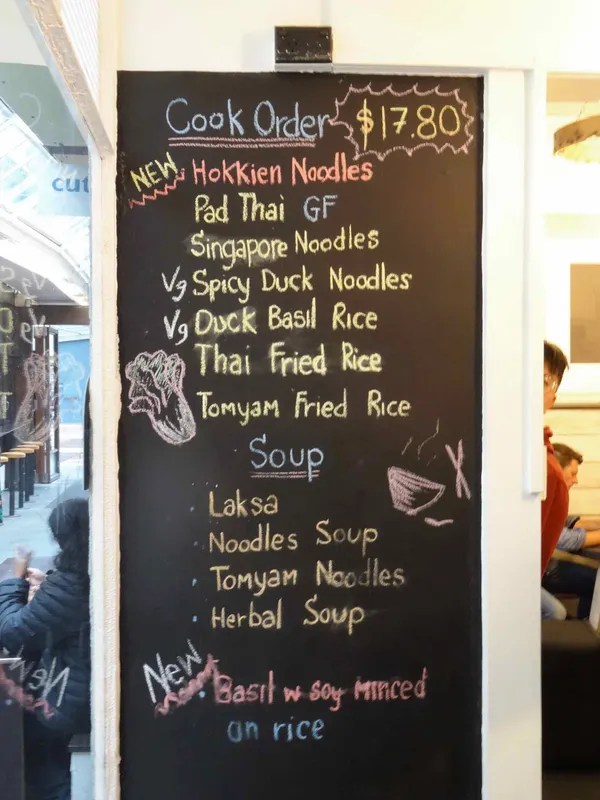 Cook Order $17.80
NEW Hokkien Noodles
Pad Thai GF
Singapore Noodles
Vg Spicy Duck Noodles
Vg Duck Basil Rice
Thai Fried Rice
Tomyam Fried Rice
Soup
Laksa
Noodles Soup
Tomyam Noodles
Herbal Soup
New Basil w soy minced
on rice
cut